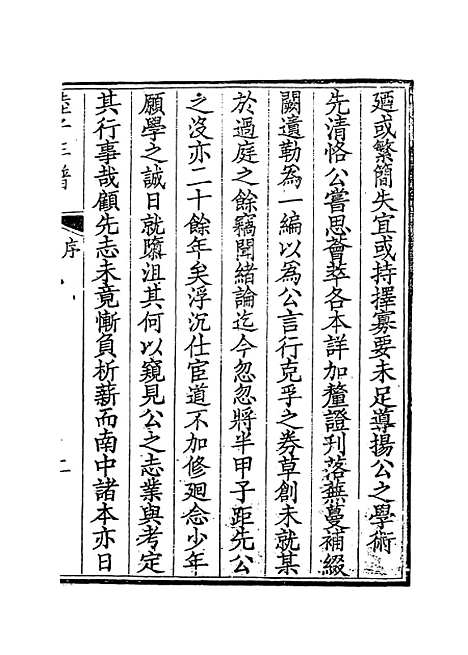 廼或繁簡失宜或持擇寡要未足導揚公之學術
先清恪公嘗思薈萃各本詳加釐證刋落蕪蔓補綴
闕遺勒爲一編以爲公言行克孚之券草創未就某
於過庭之餘竊聞緒論迄今忽忽將半甲子距先公
之沒亦二十餘年矣浮沉仕宦道不加修廻念少年
願學之誠日就隳沮其何以窺見公之志業與考定
其行事哉顧先志未竟慚負析薪而南中諸本亦日
序